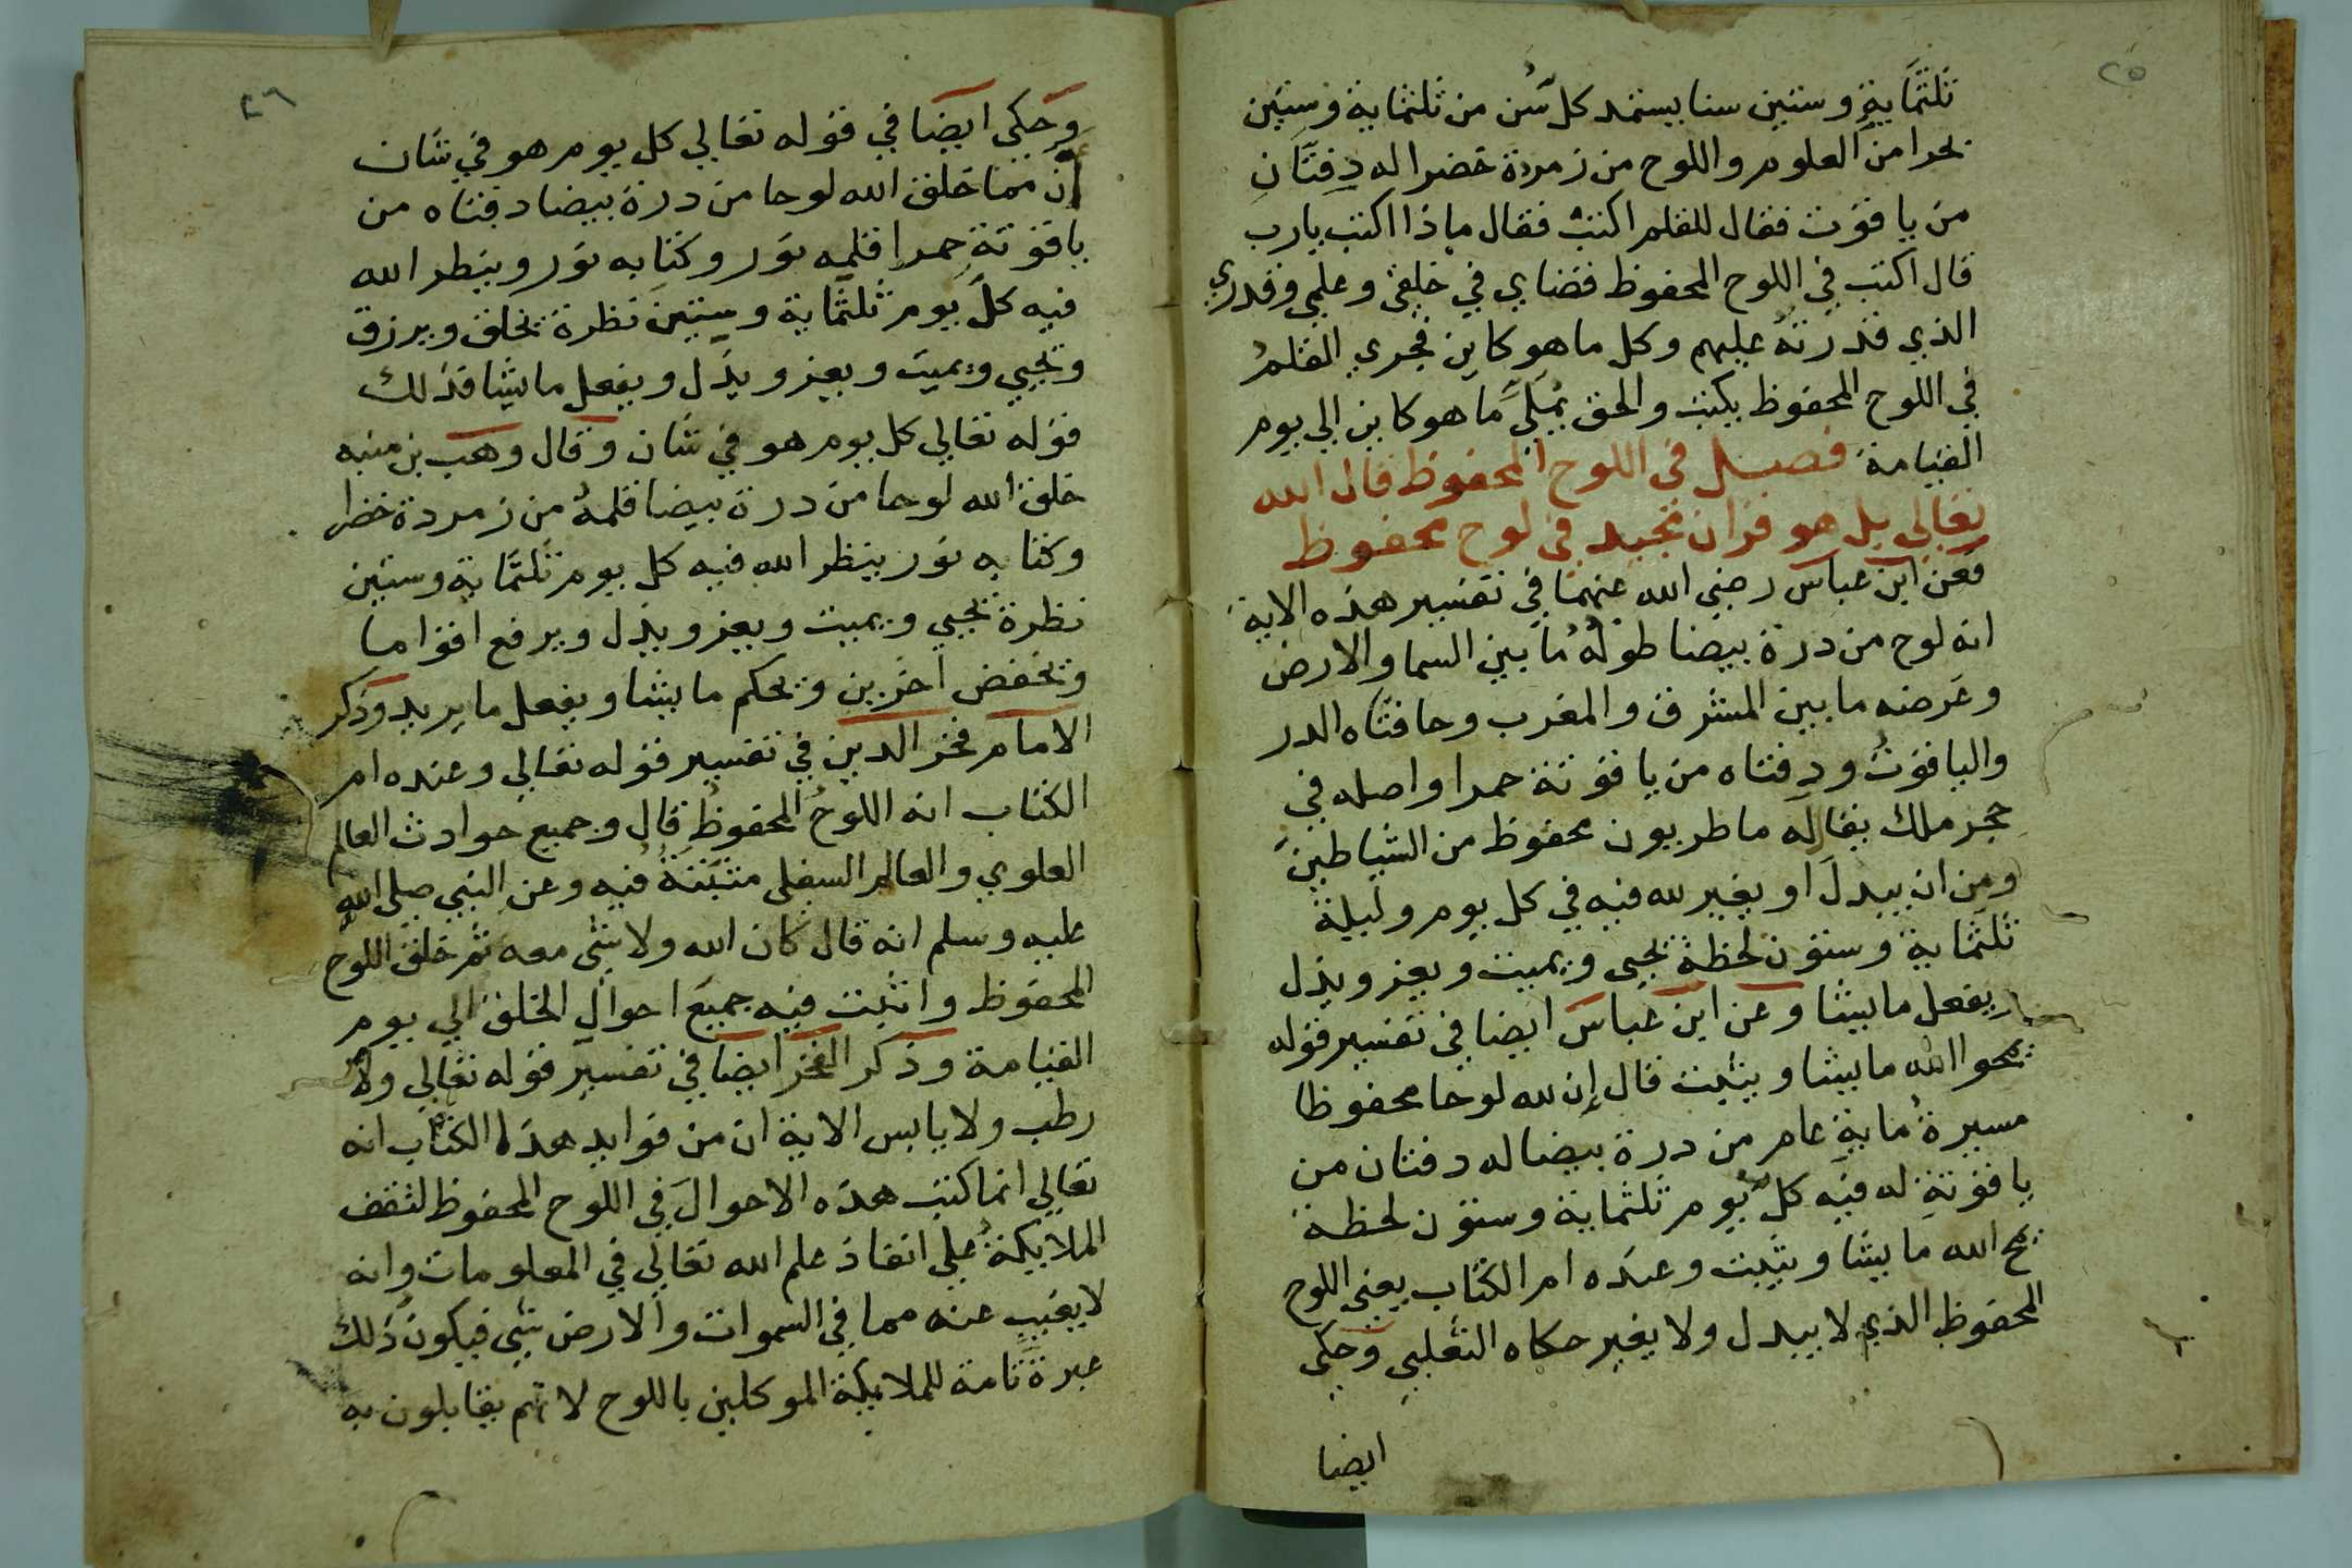 ٢٥
ثلثماية وستين سنا يستمد كل سن من ثلثماية وستين
بحرا من العلوم واللوح من زمردة خضرا له دفتان
من ياقوت فقال للقلم اكتب فقال ماذا اكتب يارب
قال اكتب في اللوح المحفوظ قضاي في خلقي وعلمي وقدري
الذي قدرته عليهم وكل ما هو كاين فجري القلم
في اللوح المحفوظ يكتب والحق يملي ما هو كاين الي يوم
القيامة فصل في اللوح المحفوظ قال الله
تعالي بل هو قران مجيد في لوح محفوظ
فعن ابن عباس رضي الله عنهما في تفسير هذه الاية
انه لوح من درة بيضا طوله ما بين السما والارض
وعرضه ما بين المشرق والمغرب وحافتاه الدر
والياقوت ودفتاه من ياقوتة حمرا واصله في
حجر ملك يقال له ماطريون محفوظ من الشياطين
ومن ان يبدل او يغير لله فيه في كل يوم وليلة
ثلثماية وستون لحظة يحيي ويميت ويعز ويذل
ويفعل ما يشا وعن ابن عباس ايضا في تفسير قوله
يمحوا الله ما يشا ويثبت قال إن لله لوحا محفوظا
مسيرة ماية عام من درة بيضا له دفتان من
ياقوتة له فيه كل يوم ثلثماية وستون لحظة
يمح الله ما يشا ويثبت وعنده ام الكتاب يعني اللوح
المحفوظ الذي لا يبدل ولا يغير حكاه الثعلبي وحكي
ايضا
٢٦
وحكي ايضا في قوله تعالي كل يوم هو في شان
ان مما خلق الله لوحا من درة بيضا دفتاه من
ياقوتة حمرا قلمه نور وكتابه نور وينظر الله
فيه كل يوم ثلثماية وستين نظرة يخلق ويرزق
ويحيي ويميت ويعز ويذل ويفعل ما يشا فذلك
قوله تعالي كل يوم هو في شان وقال وهب بن منبه
خلق الله لوحا من درة بيضا قلمه من زمردة خضرا
وكتابه نور ينظر الله فيه كل يوم ثلثماية وستين
نظرة يحيي ويميت ويعز ويذل ويرفع اقواما
ويخفض اخرين ويحكم ما يشا ويفعل ما يريد وذكر
الامام فخر الدين في تفسير قوله تعالي وعنده ام
الكتاب انه اللوح المحفوظ قال وجميع حوادث العالم
العلوي والعالم السفلي مثبتة فيه وعن النبي صلى الله
عليه وسلم انه قال كان الله ولا شي معه ثم خلق اللوح
المحفوظ واثبت فيه جميع احوال الخلق الي يوم
القيامة وذكر الفخر ايضا في تفسير قوله تعالي ولا
رطب ولا يابس الاية ان من فوايد هذا الكتاب انه
تعالي انما كتب هذه الاحوال في اللوح المحفوظ لتقف
الملايكة علي انفاذ علم الله تعالي في المعلومات وانه
لا يغيب عنه مما في السموات والارض شي فيكون ذلك
عبرة تامة للملايكة الموكلين باللوح لانهم يقابلون به